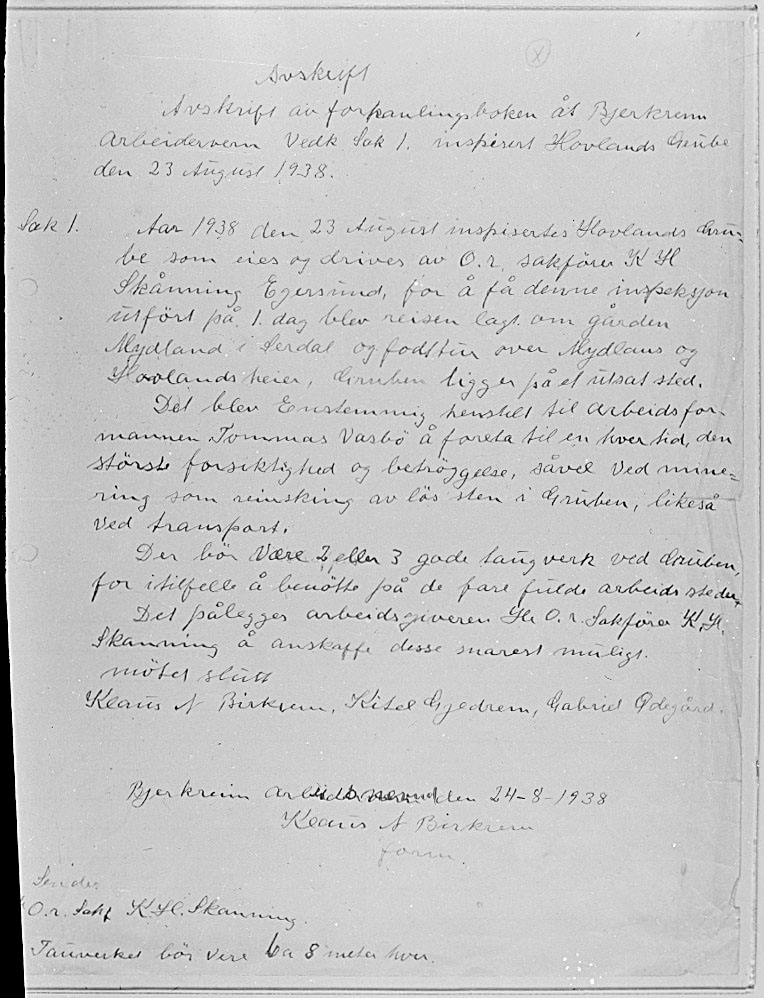 Avskrift
Avskrift av forhanlingsboken åt Bjerkreim
Arbeidervern Vedk Sak 1. inspisert Hovlands Grube
den 23 August 1938.
Sak 1. Aar 1938 den 23 August inspisertes Hovlands Gru=
be som eies og drives av O.r. sakförer K H
Skånning Egersund, for å få denne inspeksjon
utfört på 1. dag blev reisen lagt om gården
Mydland i Serdal og fodttur over Mydlans og
Hovlands heier, Gruben ligger på et utsat sted.
Det blev Enstemmig henstilt til Arbeidsfor-
mannen Tommas Vasbö å foreta til en hver tid, den
störste forsiktighed og betröggelse, såvel Ved mine=
ring som reinsking av lös sten i Gruben, likeså
Ved transport.
Der bör Være 2 eller 3 gode taugverk ved Gruben,
for i tilfelle å benötte på de fare fulde arbeids steder.
Det pålegges arbeidsgiveren Hr O.r. Sakförer K.H.
Skanning å anskaffe desse snarest muligt.
mötet slutt
Klaus N Birkrem, Kitel Gjedrem, Gabriel Ödegård.
Bjerkreim den 24-8-1938
Klaus N Birkrem
form.
Sendes
O.r. Sakf K.H. Skanning.
Tauverket bör Vere ca 8 meter hver.